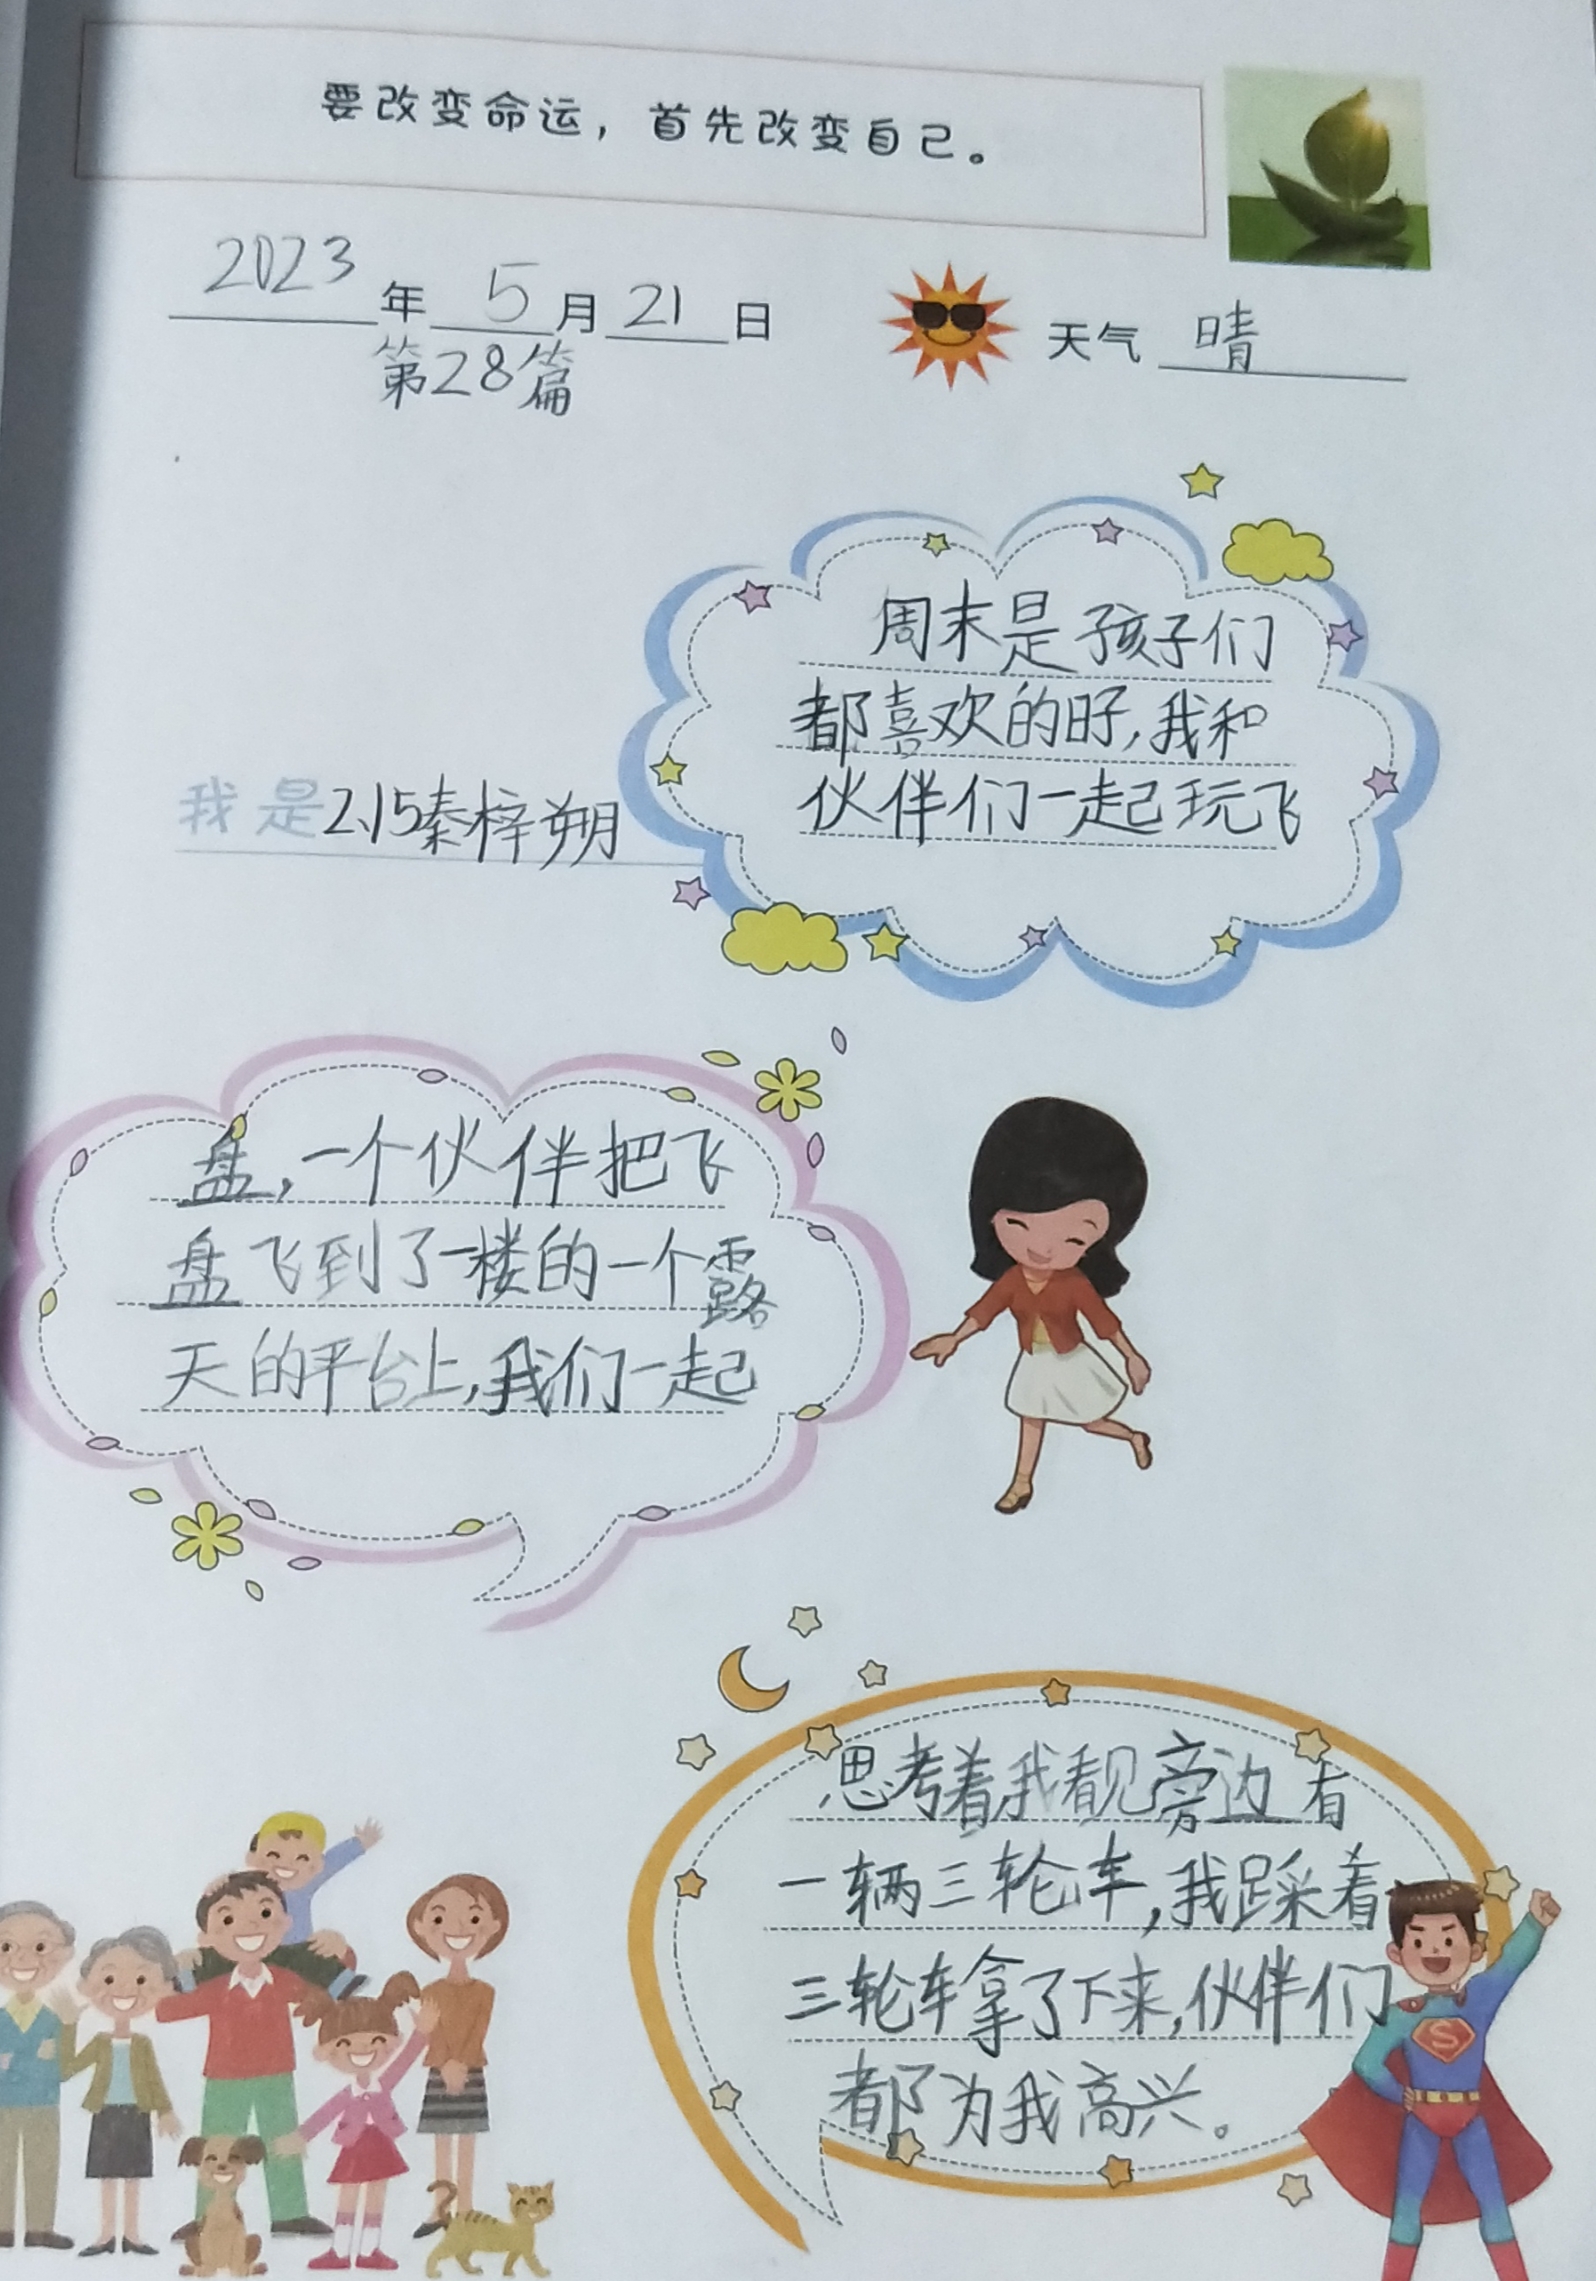 要改变命运，首先改变自己。
2023年5月21日 天气 晴
第28篇
周末是孩子们
都喜欢的日子,我和
伙伴们一起玩飞
我是2、15秦梓朔
盘,一个伙伴把飞
盘飞到了一楼的一个露
天的平台上,我们一起
思考着我看见旁边有
一辆三轮车,我踩着
三轮车拿了下来,伙伴们
都为我高兴。
S